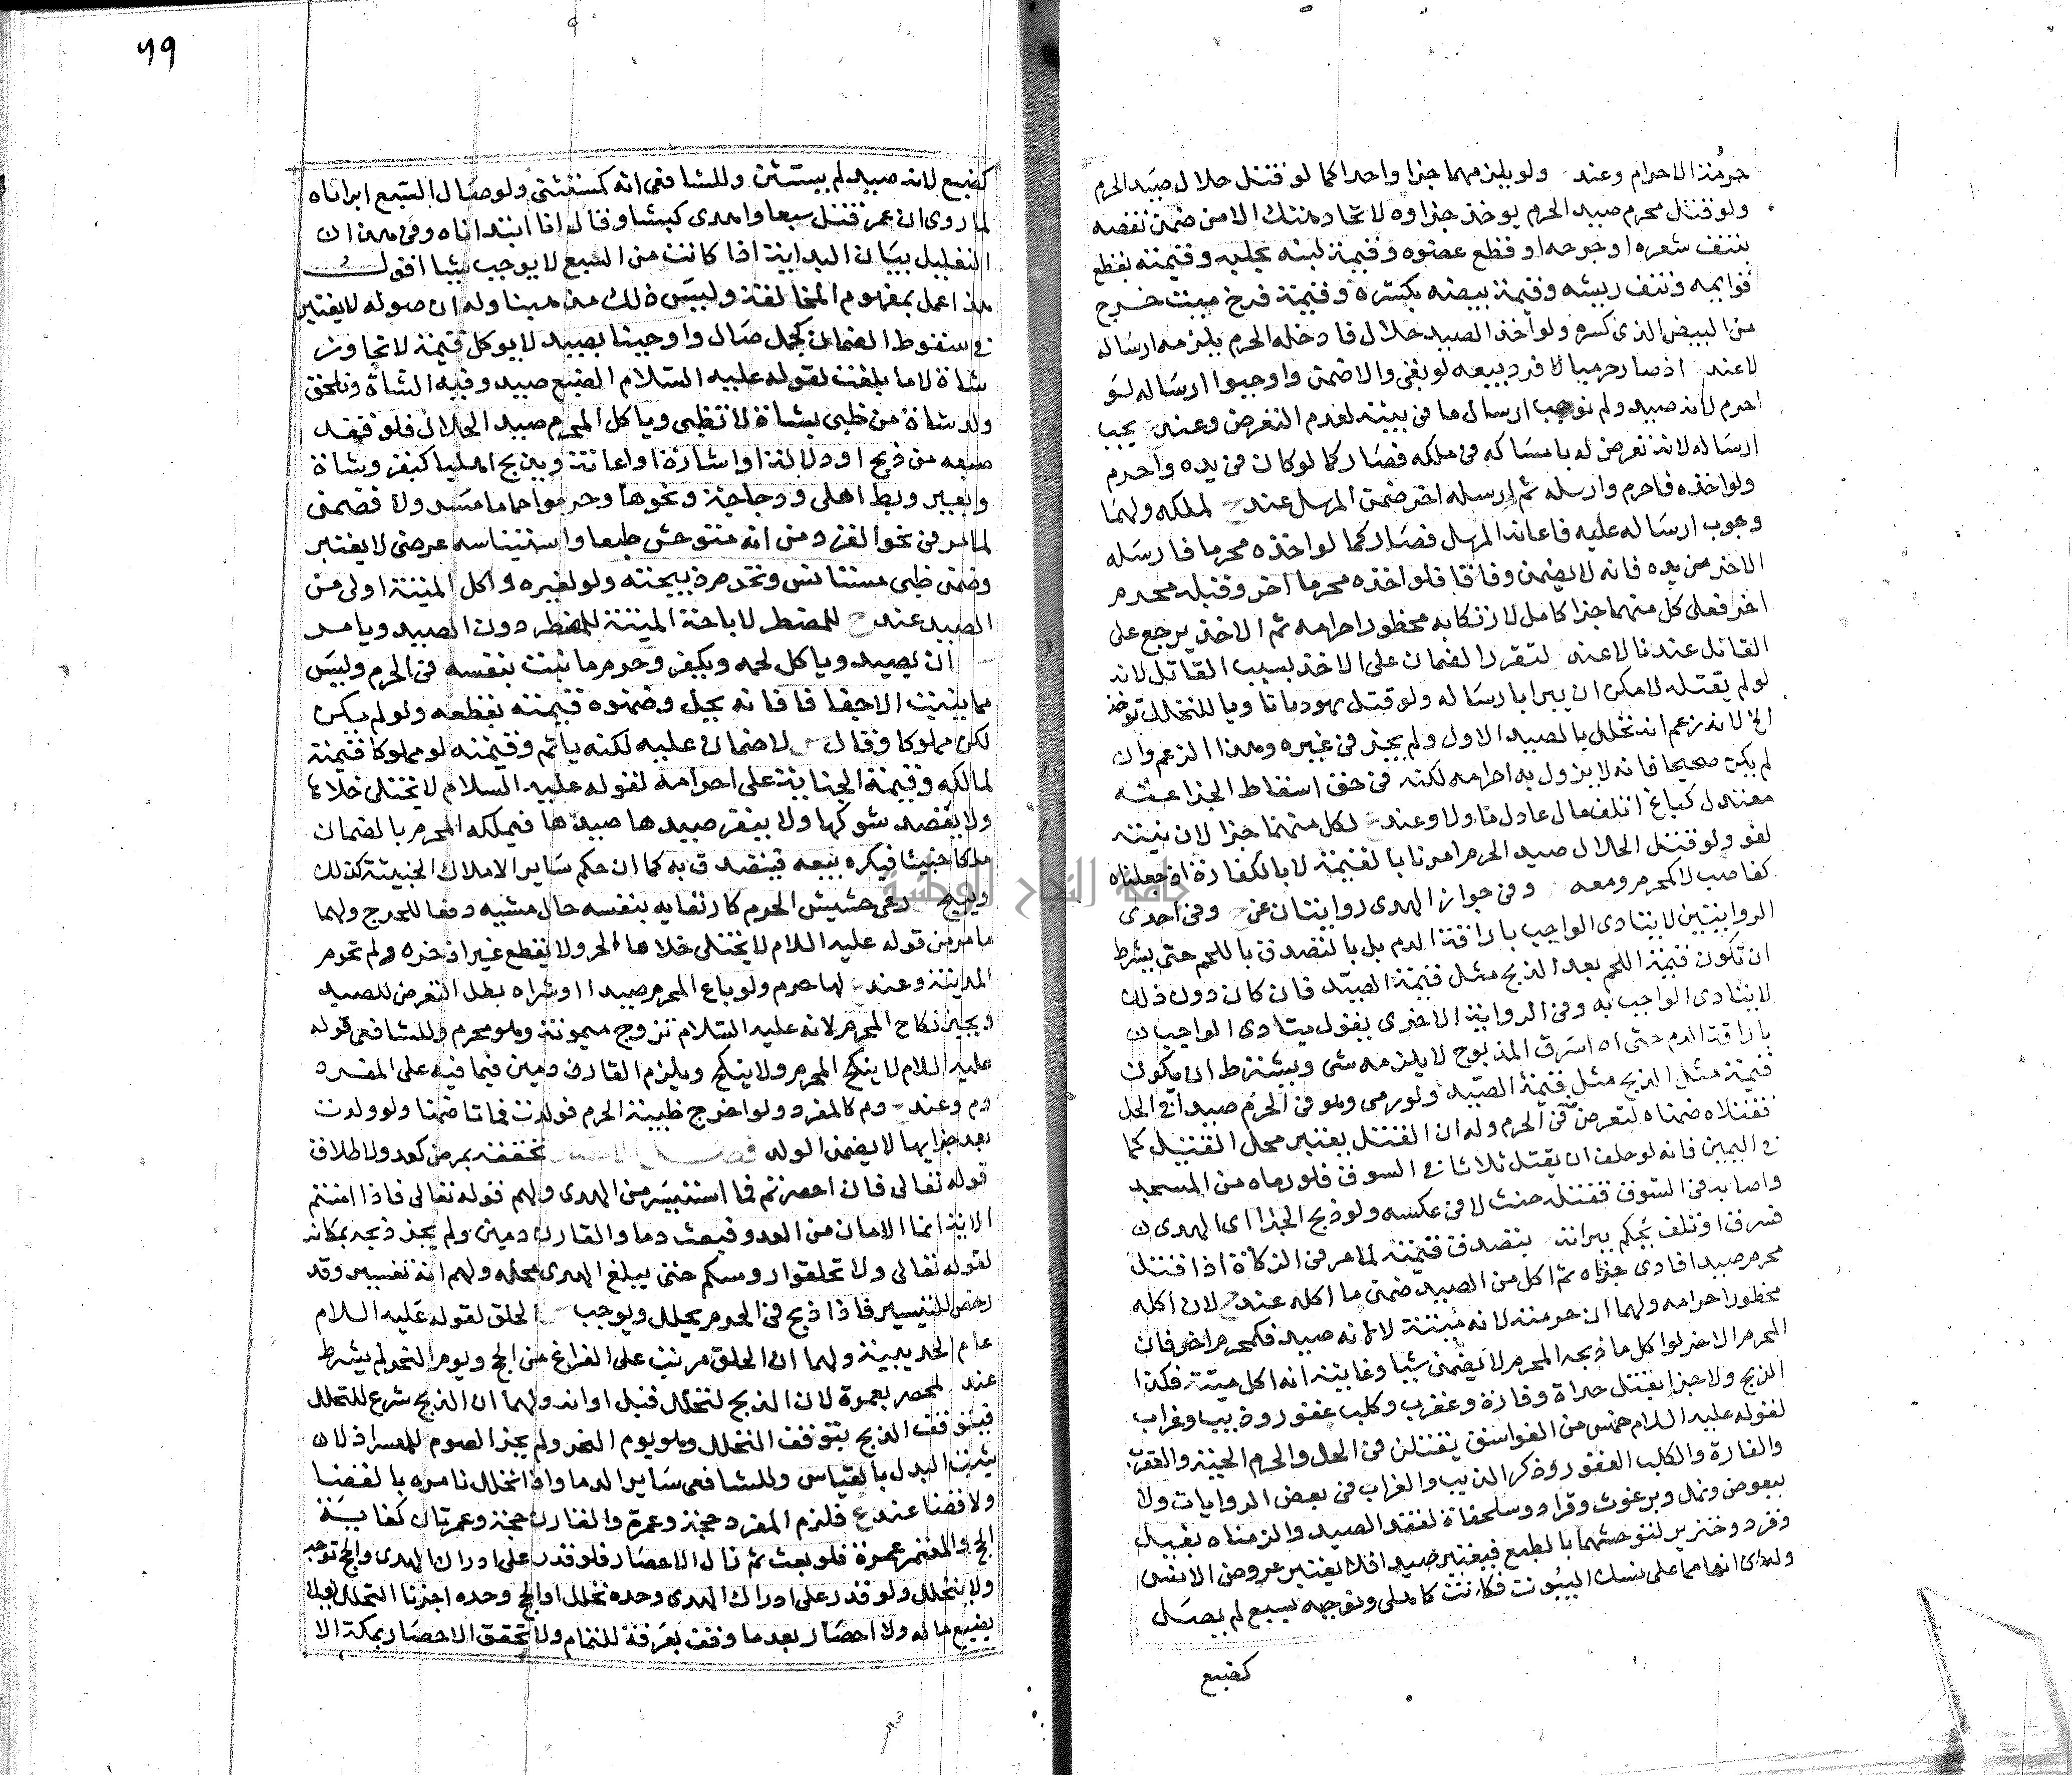 حرمة الاحرام وعند ولو يلزمهما جزا واحدا كما لو قتل حلال صيد الحرم
ولو قتل محرم صيد الحرم يوخذ جزاوه لاتحاد هتك الامن ضمن نقصه
بنتف شعره او جرحه او قطع عضوه وقيمة لبنه بحلبه وقيمته بقطع
قوايمه ونتف ريشه وقيمة بيضه بكسره وقيمة فرخ ميت خرج
من البيض الذى كسره ولو اخذ الصيد حلال فادخله الحرم يلزمه ارساله
لاعند اذ صار حرميا لا فرد بيعه لو بقى والا ضمن واوجبوا ارساله لو
احرم لانه صيد ولم نوجب ارسال ما فى بيته لعدم التعرض وعند يجب
ارساله لانه تعرض له بامساكه فى ملكه فصار كما لو كان فى يده واحرم
ولو اخذه فاحرم وارسله ثم ارسله اخر ضمن المرسل عند لملكه ولهما
وجوب ارساله عليه فاعانه المرسل فصار كما لو اخذه محرما فارسله
الاخر من يده فانه لا يضمن وفاقا فلو اخذه محرما اخر وقتله محرم
اخر فعلى كل منهما جزا كامل لارتكابه محظور احرامه ثم الاخذ يرجع على
القاتل عندنا لاعند لتقرر الضمان على الاخذ بسبب القاتل لانه
لو لم يقتله لامكن ان يبرا بارساله ولو قتل صيودا ناويا للتحلل توخذ
الخ لانه زعم انه تحلل بالصيد الاول ولم يجن فى غيره وهذا الزعم وان
لم يكن صحيحا فانه لا يزول به احرامه لكنه فى حق اسقاط الجزا عنه
معتدل كباغ اتلف مال عادل ما ولا وعند لكل منهما جزا لان نيته
لغو ولو قتل الحلال صيد الحرم امرنا بالقيمة لا بالكفارة اذ جعلناه
كغاصب لا كمحرم ومعه وفى جواز الهدى روايتان عن وفى احدى
الروايتين لا يتادى الواجب باراقة الدم بل بالتصدق باللحم حتى يشرط
ان تكون قيمة اللحم بعد الذبح مثل قيمة الصيد فان كان دون ذلك
لا يتادى الواجب به وفى الرواية الاخرى يقول يتادى الواجب ان
باراقة الدم حتى اذا سرق المذبوح لا يلزمه شى ويشترط ان يكون
قيمة مثل الذبح مثل قيمة الصيد ولو رمى وهو فى الحرم صيدا فى الحل
فقتلاه ضمناه لتعرض من فى الحرم وله ان القتل يعتبر محل القتيل كما
فى اليمين فانه لو حلف ان يقتل ثلاثا فى السوق فلو رماه من المسجد
واصابه فى السوق فقتله حنث لا فى عكسه ولو ذبح الجزا اى الهدى ن
فسرق او تلف نحكم ببراته بتصدق قيمته لما مر فى الزكاة اذا قتل
محرم صيدا فادى جزاه ثم اكل من الصيد ضمن ما اكله عند لان اكله
محظور احرامه ولهما ان حرمته لانه ميتة لا لانه صيد فكمحرم اخر فان
المحرم الاخر لو اكل ما ذبحه المحرم لا يضمن شيا وغايته انه اكل ميتة فكذا
الذبح ولا جزا بقتل حداة وفارة وعقرب وكلب عقور وذيب وغراب
لقوله عليه السلام خمس من الفواسق يقتلن فى الحل والحرم الحية والعقرب
والفارة والكلب العقور وذكر الذيب والغراب فى بعض الروايات ولا
ببعوض ونمل وبرغوث وقراد وسلحفاة لفقد الصيد والزمناه بفيل
وقرد وخنزير لتوحشهما بالطبع فيعتبر صيدا فلا يعتبر عروض الانس
ولذى انهما على نسك البيوت فكانت كاهلى ونوجبه بسبع لم يصل
كضبع
٦٩
كضبع لانه صيد لم يستثن وللشافعى انه كمستثنى ولو صال السبع ابراناه
لما روى ان عمر قتل سبعا واهدى كبشا وقال انا ابتداناه وفى هذا ان
التعليل ببيان البداية اذا كانت من السبع لا يوجب شيا اقول
هذا عمل بمفهوم المخالفة وليس ذلك من مبناوله ان صوله لا يعتبر
فى سقوط الضمان كجمل صال واوجبنا بصيد لا يوكل قيمة لا تجاوز
شاة لا ما بلغت لقوله عليه السلام الضبع صيد وفيه الشاة ونلحق
ولد شاة من ظبى بشاة لا تظبى وياكل المحرم صيد الحلال فلو فقد
صيعه من ذبح او دلالة او اشارة او اعانة ويذبح اهليا كبقر وشاة
وبعير وبط اهلى ودجاجة ونحوها وحرموا حماما مسرولا فضمن
لما مر فى نحو القرد من انه متوحش طبعا واستيناسه عرضى لا يعتبر
وضمن ظبى مستانس وتحرم ذبيحته ولو لغيره واكل الميتة اولى من
الصيد عند للمضطر لاباحة الميتة للمضطر دون الصيد ويامر
ان يصيد وياكل لحمه ويكفر وحرم ما نبت بنفسه فى الحرم وليس
مما ينبت الا جفا فا فانه يحل وضمنوه قيمته بقطعه ولو لم يكن
لكن مملوكا وقال لا ضمان عليه لكنه ياثم وقيمته لو مملوكا قيمة
لمالكه وقيمة الجناية على احرامه لقوله عليه السلام لا يختلى خلاها
ولا يعضد شوكها ولا ينفر صيدها صيدها فيملكه المحرم بالضمان
ملكا خبيثا فيكره بيعه فيتصدق به كما ان حكم ساير الاملاك الخبيثة كذلك
ويبيح رعى حشيش الحرم كارتعايه بنفسه حال مشيه دفعا للحرج ولهما
ما مر من قوله عليه السلام لا يختلى خلاها الحر ولا يقطع غير اذخره ولم تحرم
المدينة وعند لها حرم ولو باع المحرم صيدا او شراه بطل التعرض للصيد
ويجيز نكاح المحرم لانه عليه السلام تزوج ميمونة وهو محرم وللشافعى قوله
عليه السلام لا ينكح المحرم ولا ينكح ويلزم القارن دمين فيما فيه على المفرد
دم وعند دم كالمفرد ولو اخرج ظبية الحرم فولدت فماتا ضمنا ولو ولدت
بعد جزايها لا يضمن الولد فصل نحققه بمرض كعدو لاطلاق
قوله تعالى فان احصرتم فما استيسر من الهدى ولهم قوله تعالى فاذا امنتم
الاية انما الامان من العدو فيبعث دما والقارن دمين ولم يجز ذبحه بمكانه
لقوله تعالى ولا تحلقوا روسكم حتى يبلغ الهدى محله ولهم انه تفسير وقد
رخص للتيسير فاذا ذبح فى الحرم يحلل ويوجب الحلق لقوله عليه السلام
عام الحديبية ولهما ان الحلق مرتب على الفراغ من الحج ويوم النحر لم يشرط
عند لمحصر بعمرة لان الذبح لتحلل قبل اوانه ولهما ان الذبح شرع للتحلل
فيتوقف الذبح بتوقف التحلل وهو يوم النحر ولم يجز الصوم للمعسر اذ لان
يثبتا البدل بالقياس وللشافعى ساير الدما واذا تحلل نامره بالقضا
ولا قضا عند ع فلزم المفرد حجة وعمرة والقارن حجة وعمرتان كفايتة
الحج والمعتمر عمرة فلو بعث ثم زال الاحصار فلو قدر على ادراك الهدى والحج توجه
ولا يتحلل ولو قدر على ادراك الهدى وحده تحلل او الحج وحده اجزنا التحلل ليلا
يضيع ماله ولا احصار بعد ما وقف بعرفة للتمام ولا تحقق الاحصار بمكة الا
جامعة النجاح الوطنية